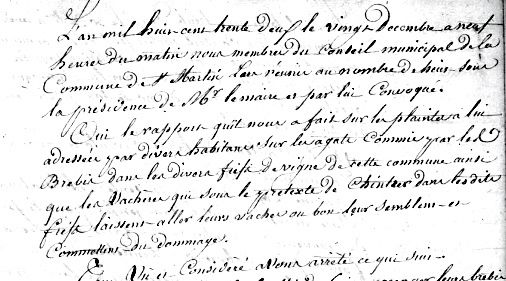 L'an mil huit cent trente deux le vingt Decembre a neuf
heures du matin nous membres du Conseil municipal de la
Commune de St Martin Lars réunis au nombre de huit sous
la présidence de Mr le maire et par lui Convoqué.
Oui le rapport qu'il nous a fait sur les plaintes a lui
adressées par divers habitans sur les agats Commis par les
Brebis dans les divers fiefs de vigne de cette commune ainsi
que les Vacheres qui sous le pretexte de dans les dits
fiefs laissent aller leurs vaches ou bon leur semblent et
Committent du dommage.
Vu et Considéré avons arrêté ce qui suit
leurs brebis